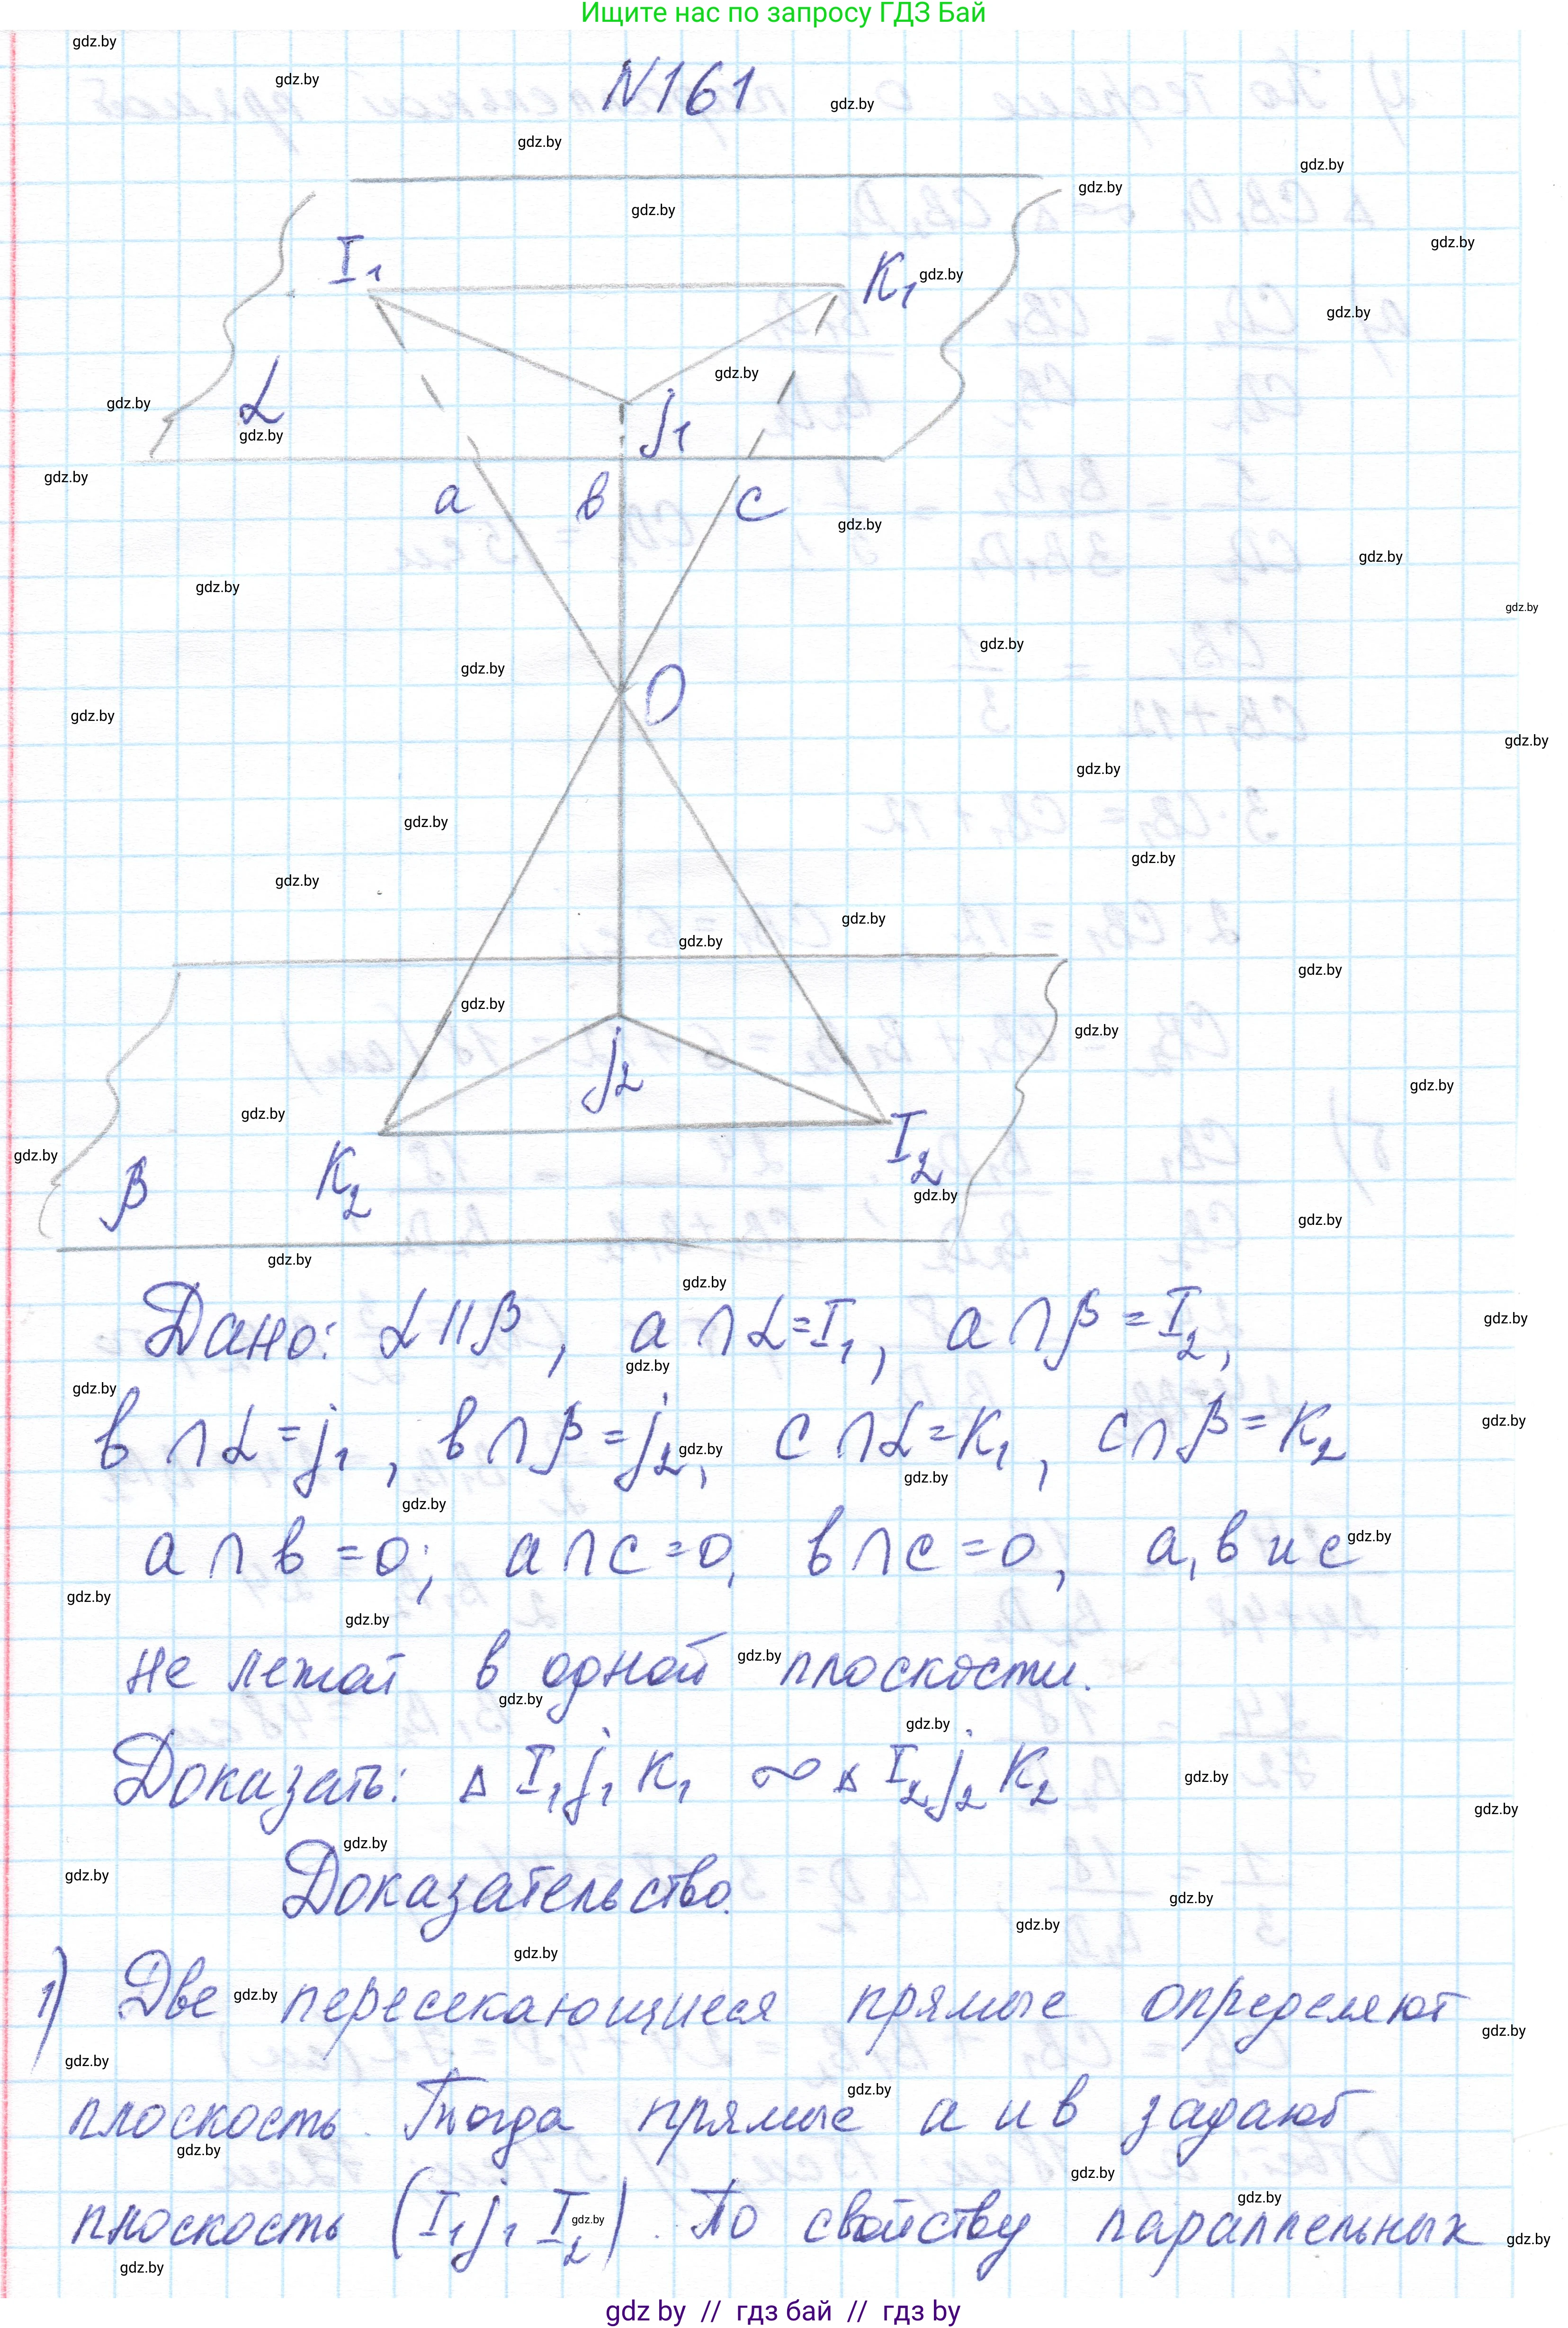 Ищите нас по запросу ГДЗ Бай
N161
I₁
K₁
α
j₁
а
в
с
О
j₂
K₂
I₂
β
Дано: α || β, а ∩ α = I₁, а ∩ β = I₂,
в ∩ α = j₁, в ∩ β = j₂, с ∩ α = K₁, с ∩ β = K₂
а ∩ в = о; а ∩ с = о, в ∩ с = о, а, в и с
не лежат в одной плоскости.
Доказать: Δ I₁ j₁ K₁ ∾ Δ I₂ j₂ K₂
Доказательство.
1) Две пересекающиеся прямые определяют
плоскость. Тогда прямые а и в задают
плоскость (I₁ j₁ I₂). По свойству параллельных
gdz by // гдз бай // гдз by